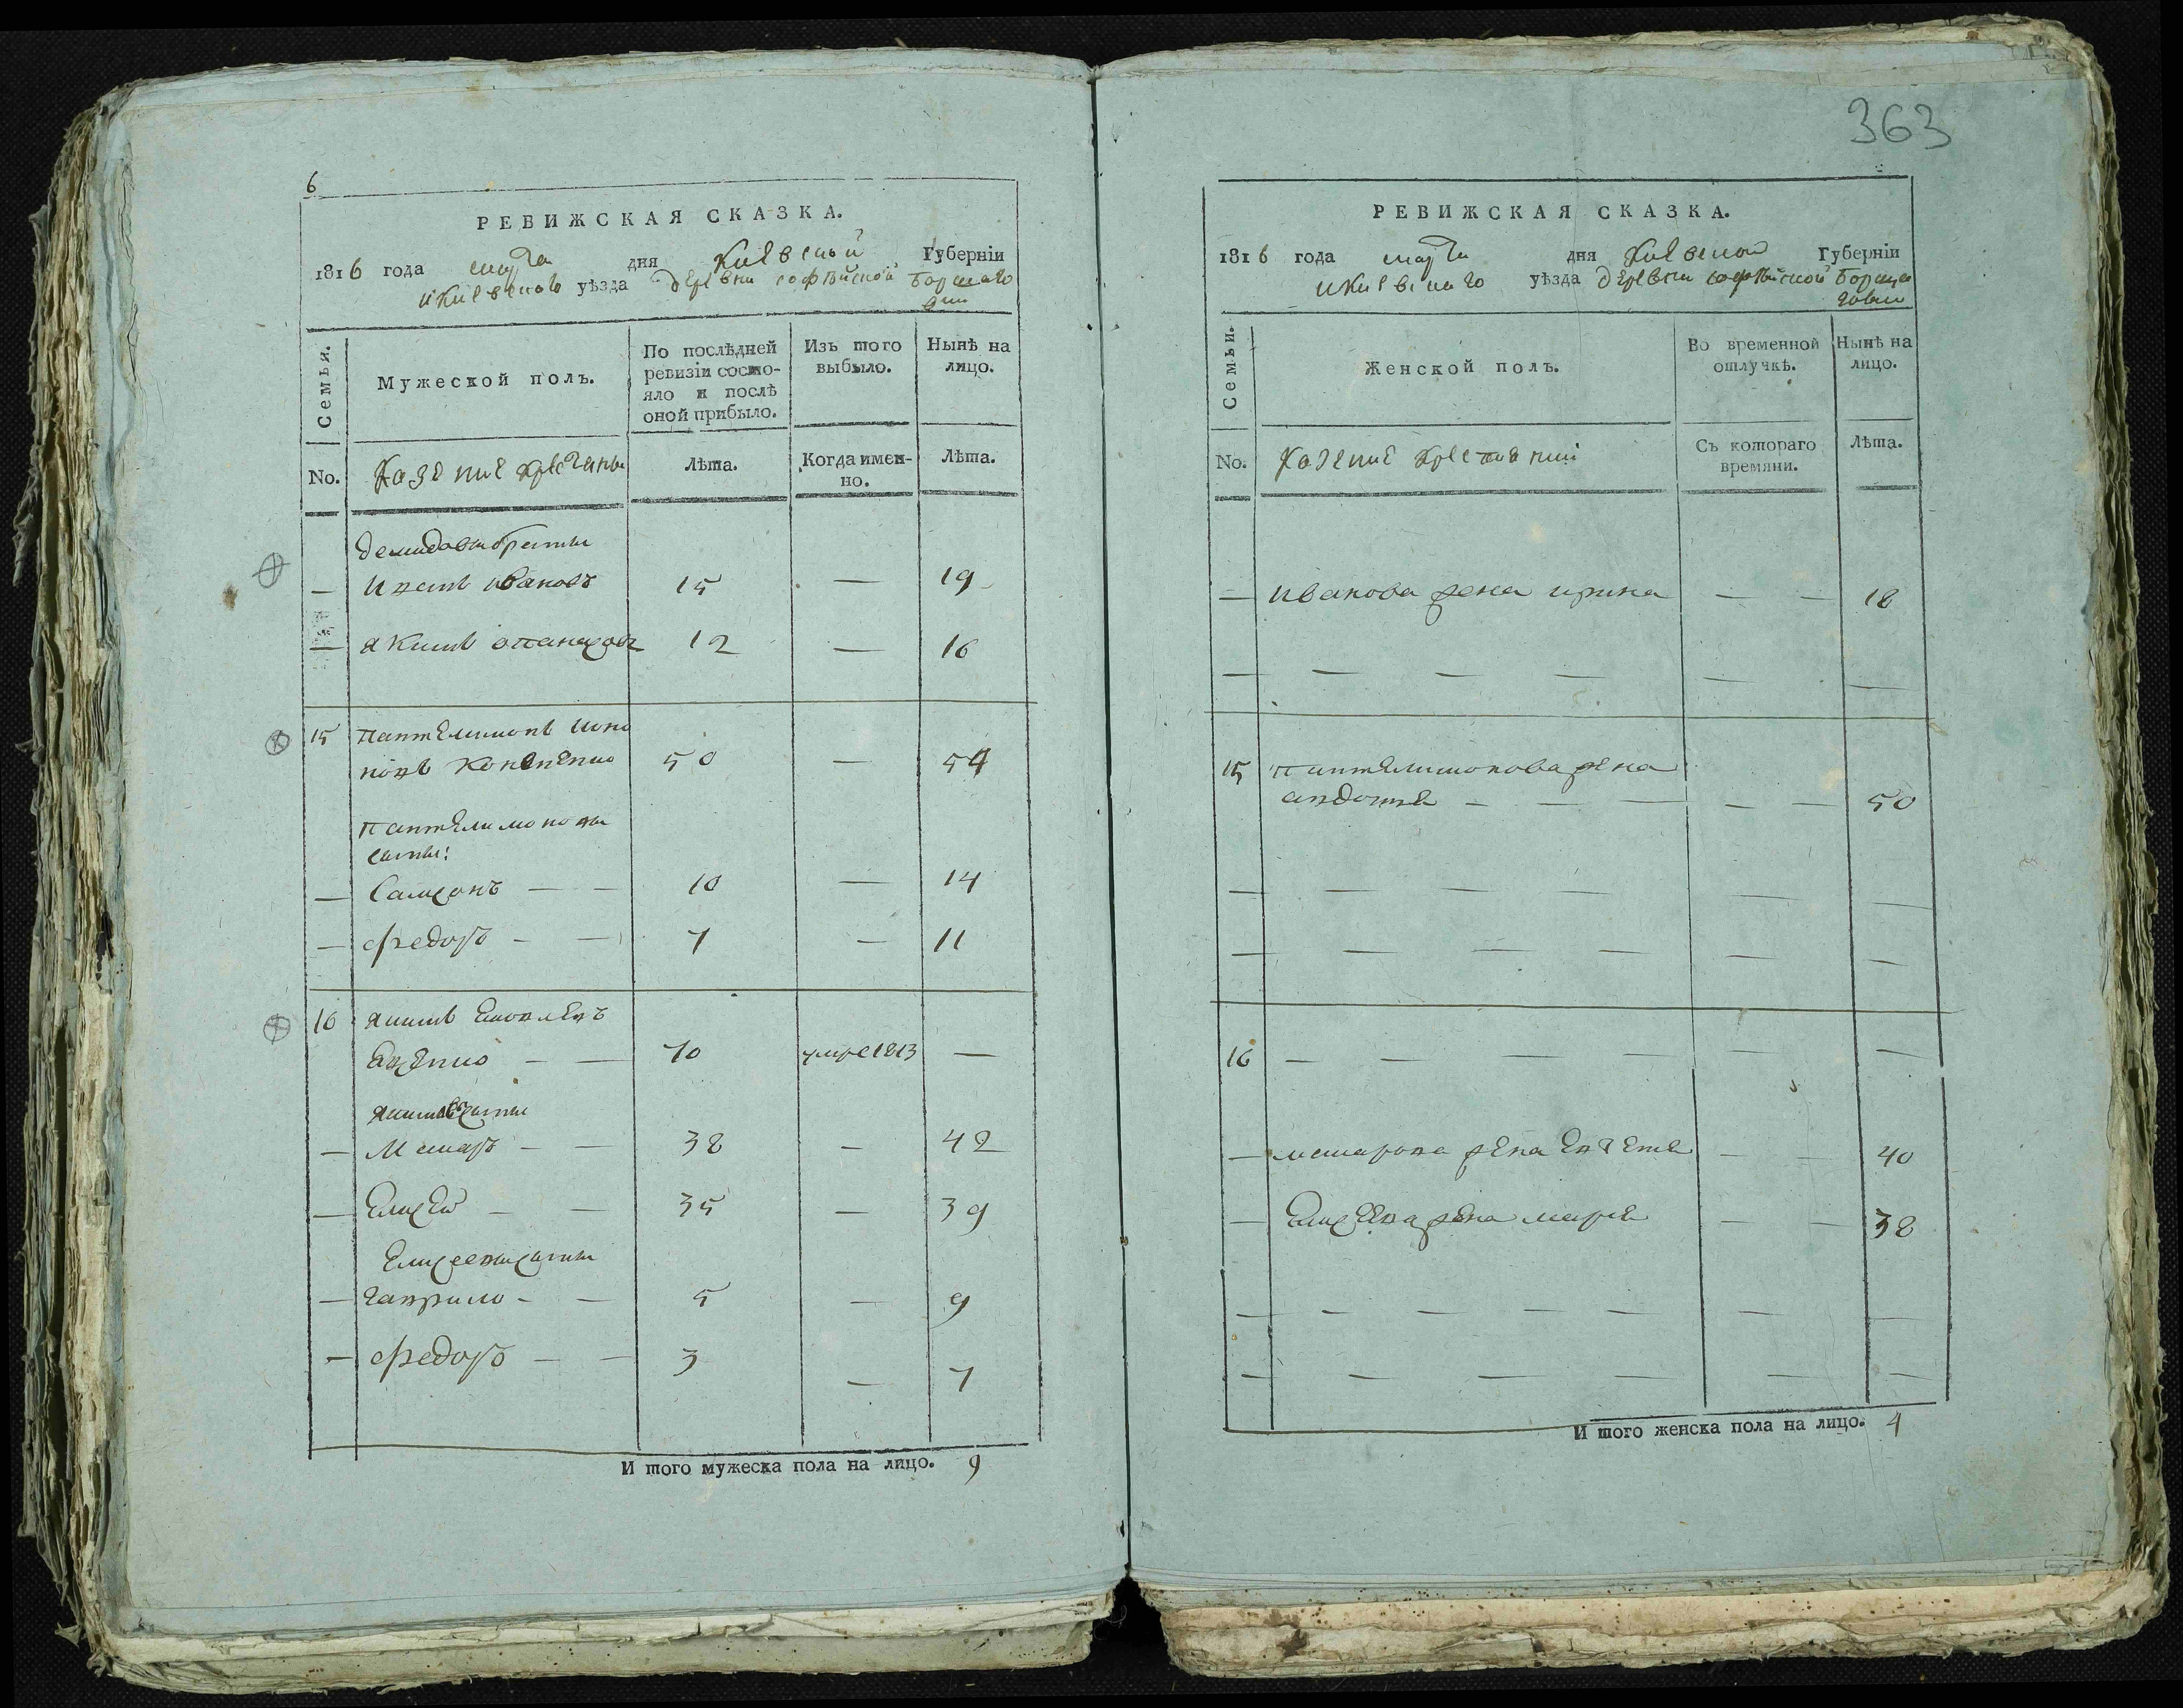 363
6
РЕВИЖСКАЯ СКАЗКА.
1816 года марта дня Киевской Губерніи
и Киевскаго уѣзда деревни софѣйской Борщаго
вки
Семья.
Мужеской полъ.
По послѣдней
ревизіи состо-
яло и послѣ
оной прибыло.
Изъ того
выбыло.
Нынѣ на
лицо.
No.
Казение крестяны
Лѣта.
Когда имен-
но.
Лѣта.
демидовы браты
— Иванъ ивановъ 15 — 19
— якимъ опанасовъ 12 — 16
15 пантелимонъ
Кононенко 50 — 54
пантелимоновы
сыны:
— Самсонъ — — 10 — 14
— федоръ — — 7 — 11
16 якимъ
— — 70 умре 1813 —
якимовы сыны
— Макаръ — — 38 — 42
— Елисей — — 35 — 39
Елисеевы сыны
— гаврило — — 5 — 9
— федоръ — — 3 — 7
И того мужеска пола на лицо. 9
РЕВИЖСКАЯ СКАЗКА.
1816 года марта дня Киевской Губерніи
и Киевскаго уѣзда деревни софѣйской Борща
говки
Семьи.
Женской полъ.
Во временной
отлучкѣ.
Нынѣ на
лицо.
No.
Казение крестянки
Съ котораго
времяни.
Лѣта.
— Иванова жена ирина — — 18
— — — — — —
15 пантелимонова жена
— — — — — 50
— — — — — —
— — — — — —
16 — — — — — —
— макарова жена — — 40
— Елисеева жена маря — — 38
— — — — — — —
— — — — — —
И того женска пола на лицо. 4